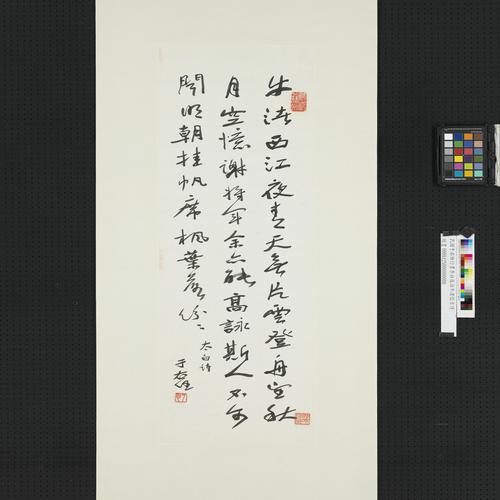 牛渚西江夜青天無片雲登舟望秋
月空憶謝將軍余亦能高詠斯人不可
聞明朝挂帆席楓葉落紛〻
太白詩
于右任